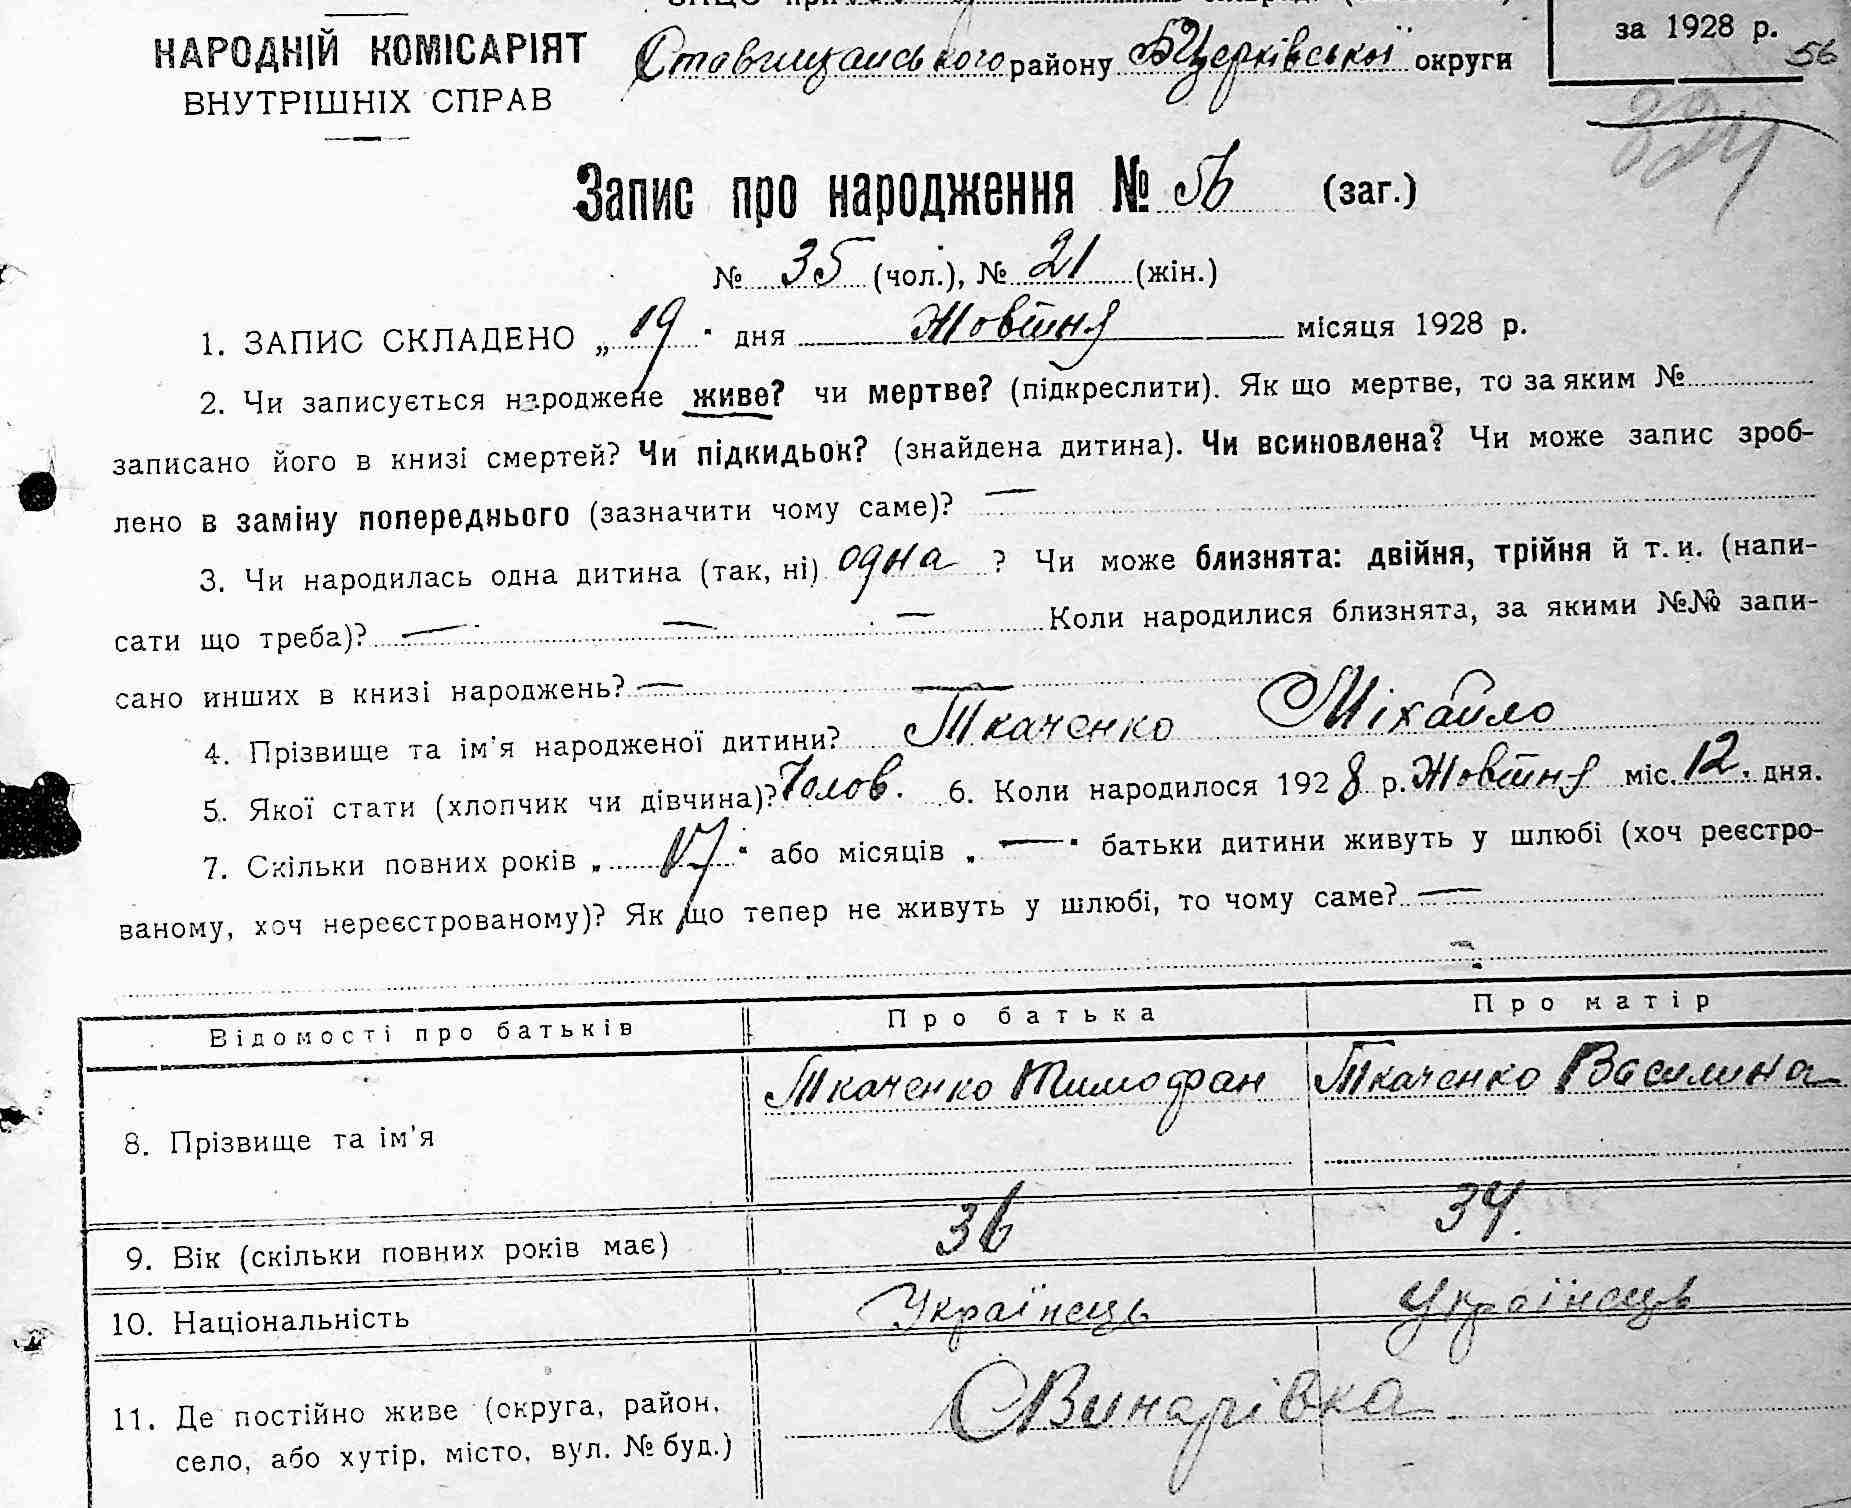 НАРОДНІЙ КОМІСАРІЯТ
ВНУТРІШНІХ СПРАВ
Ставищанського району БЦерківської округи
за 1928 р.
56
Запис про народження № 56 (заг.)
№ 35 (чол.), № 21 (жін.)
1. ЗАПИС СКЛАДЕНО „19" дня Жовтня місяця 1928 р.
2. Чи записується народжене живе? чи мертве? (підкреслити). Як що мертве, то за яким №
записано його в книзі смертей? Чи підкидьок? (знайдена дитина). Чи всиновлена? Чи може запис зроб-
лено в заміну попереднього (зазначити чому саме)? —
3. Чи народилась одна дитина (так, ні) одна ? Чи може близнята: двійня, трійня й т. и. (напи-
сати що треба)? — — — Коли народилися близнята, за якими №№ запи-
сано инших в книзі народжень? — —
4. Прізвище та ім'я народженої дитини? Ткаченко Міхайло
5. Якої стати (хлопчик чи дівчина)? Чолов. 6. Коли народилося 1928 р. Жовтня міс. 12. дня.
7. Скільки повних років „17" або місяців „—" батьки дитини живуть у шлюбі (хоч реєстро-
ваному, хоч нереєстрованому)? Як що тепер не живуть у шлюбі, то чому саме? —
Відомості про батьків Про батька Про матір
8. Прізвище та ім'я Ткаченко Тимофан Ткаченко Василина
9. Вік (скільки повних років має) 36 34.
10. Національність Українець Українець
11. Де постійно живе (округа, район,
село, або хутір, місто, вул. № буд.) СВинарівка